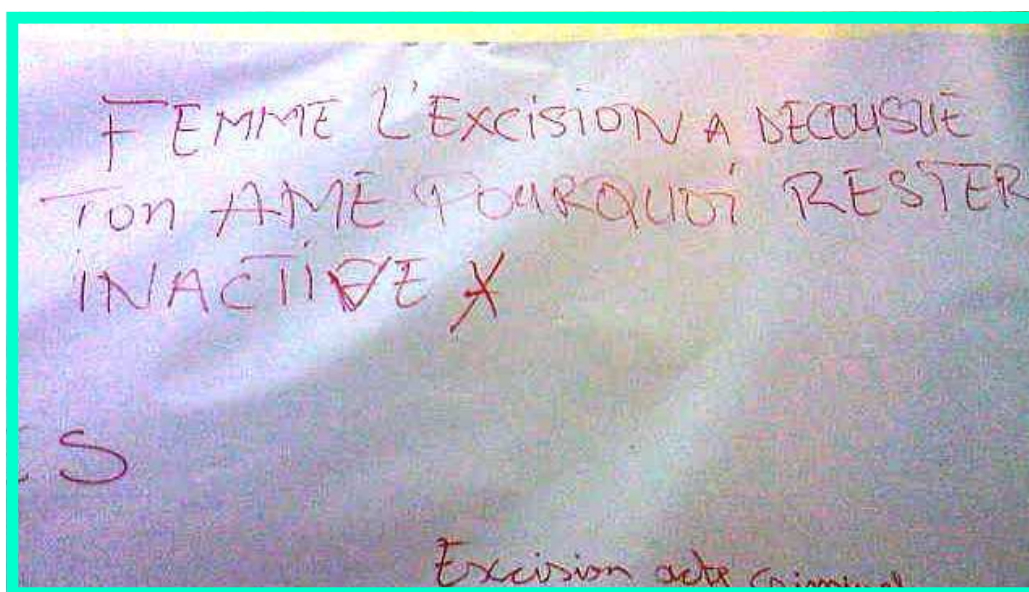 FEMME L'EXCISION A DECOUSUE
TON AME POURQUOI RESTER
INACTIVE X
ES
Excision acte criminel